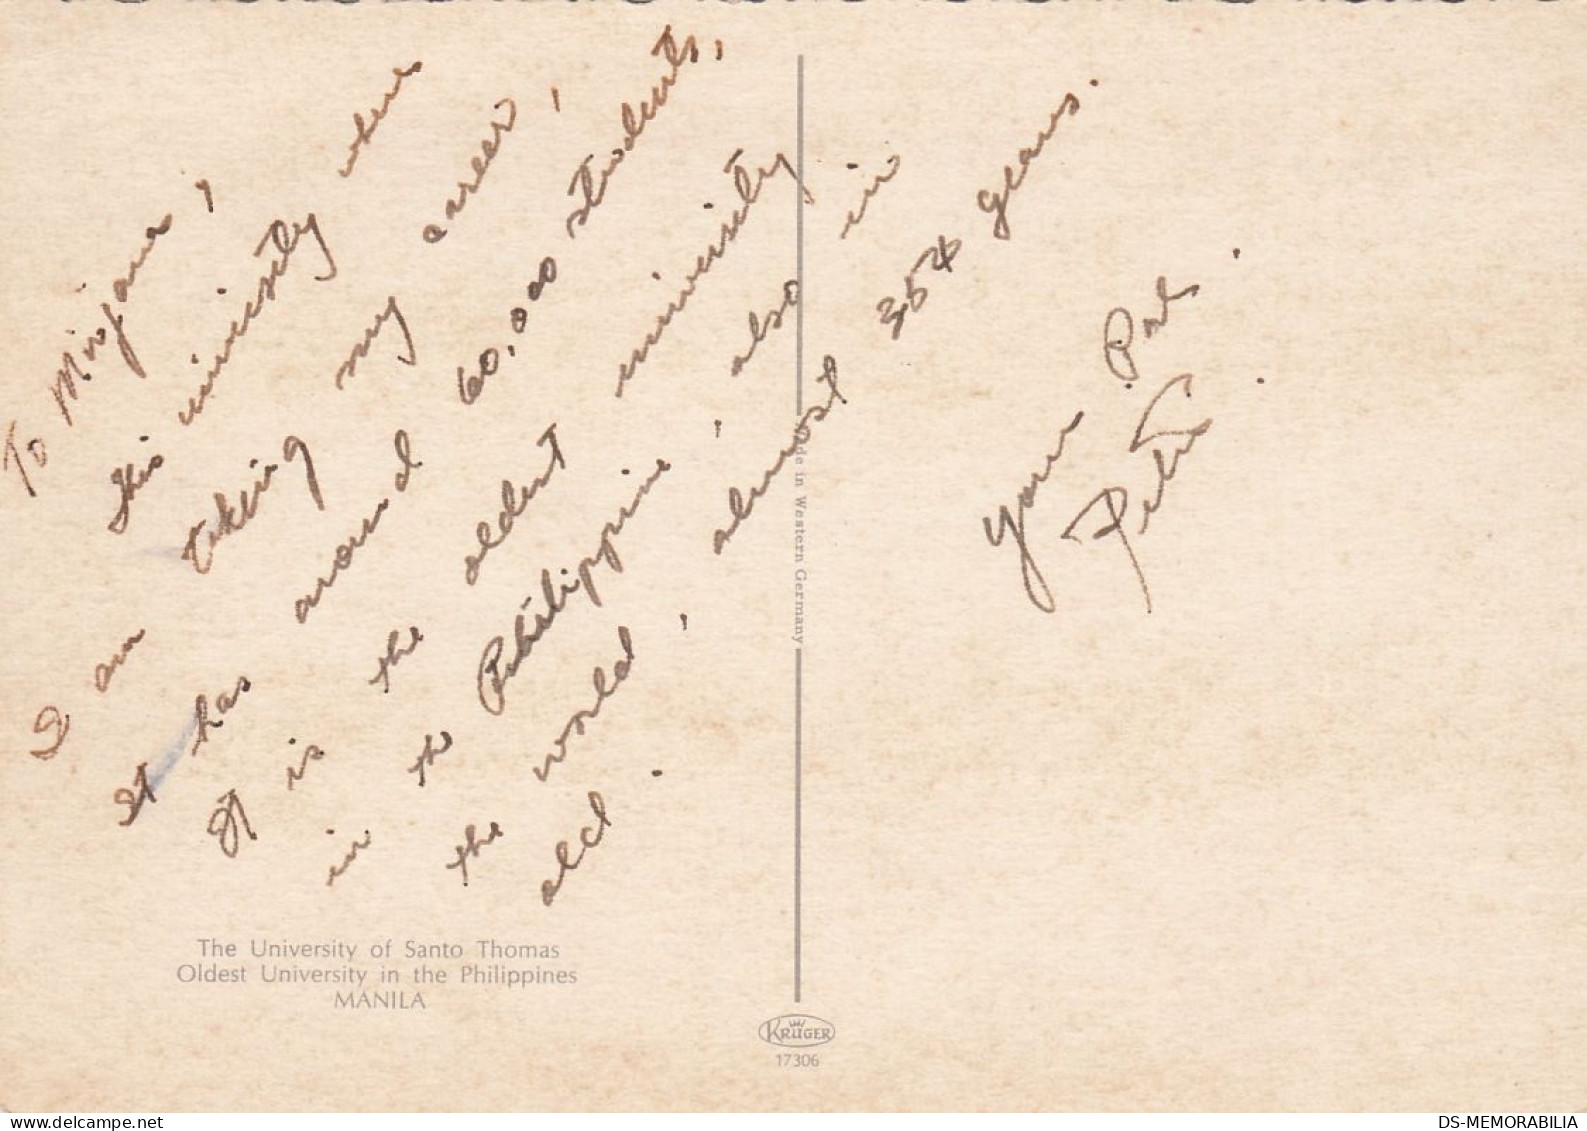 To Mirjana,
This university where
I am taking my career,
It has around 60,000 students,
It is the oldest university
in the Philippine, also in
the world, almost 354 years
old.
Your Pal.
Peter.
Made in Western Germany
The University of Santo Thomas
Oldest University in the Philippines
MANILA
KRÜGER
17306
delcampe.net
DS-MEMORABILIA